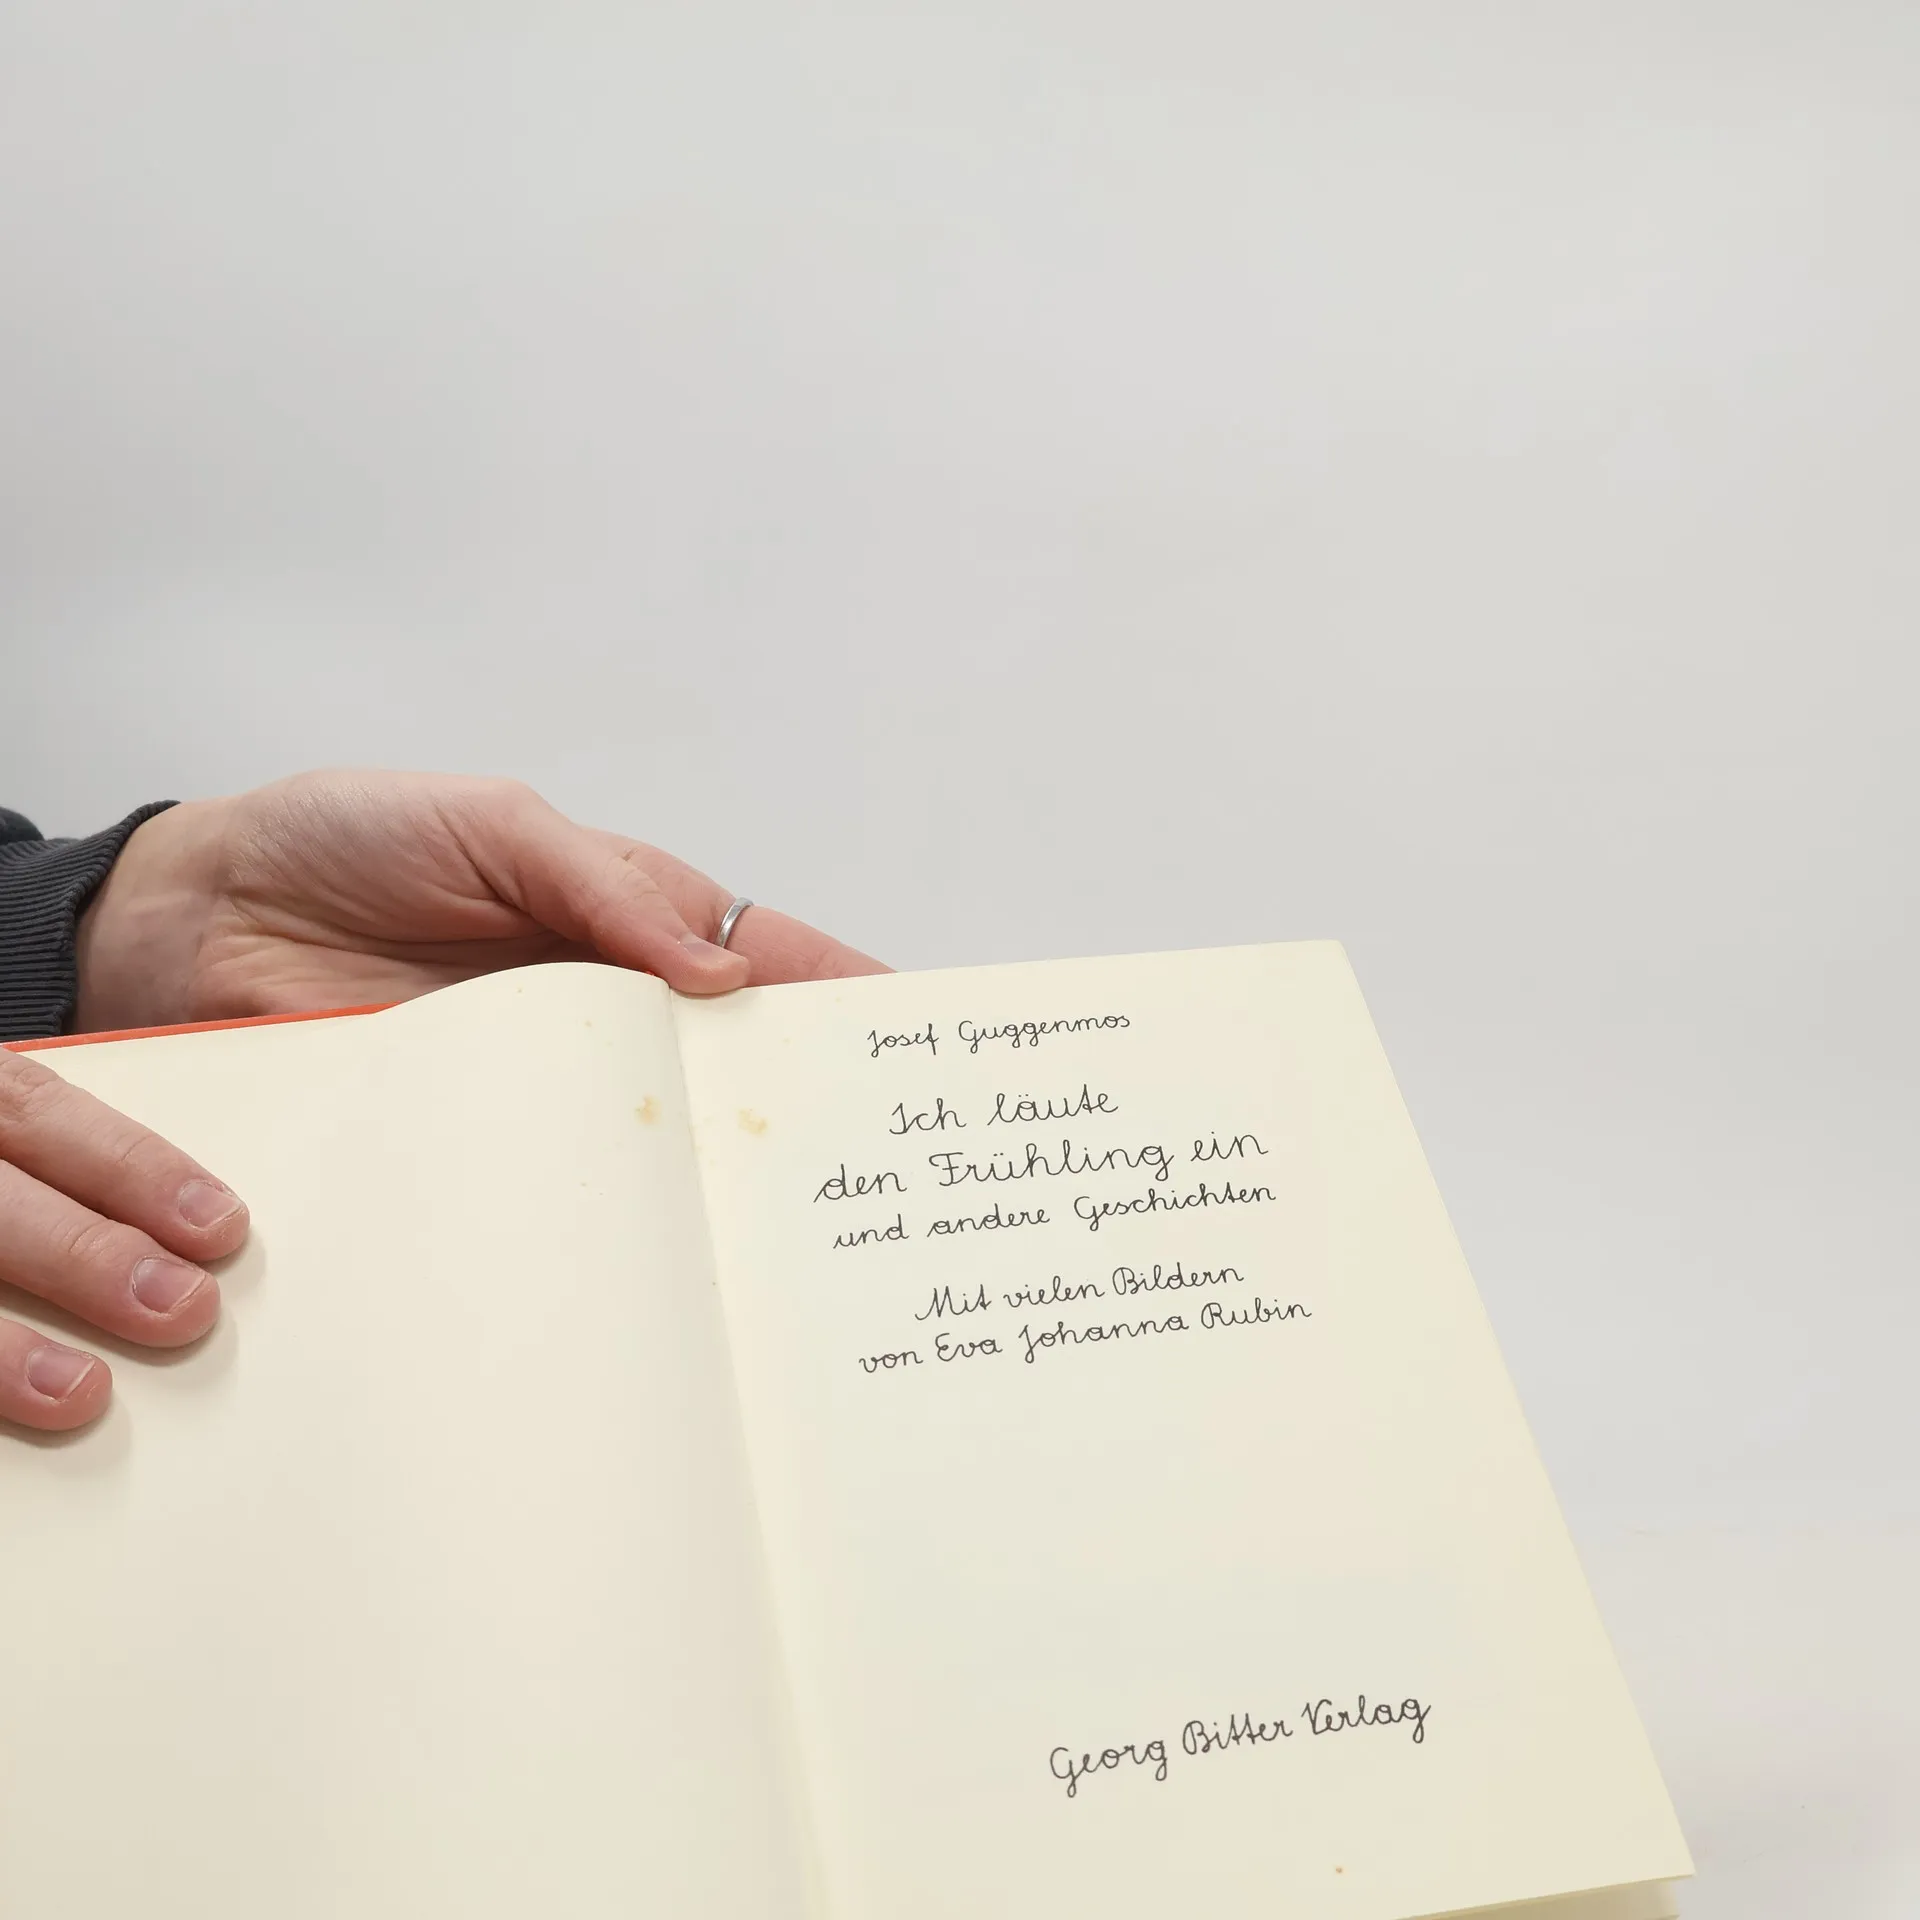 Josef Guggenmos
Ich läute
den Frühling ein
und andere Geschichten
Mit vielen Bildern
von Eva Johanna Rubin
Georg Bitter Verlag